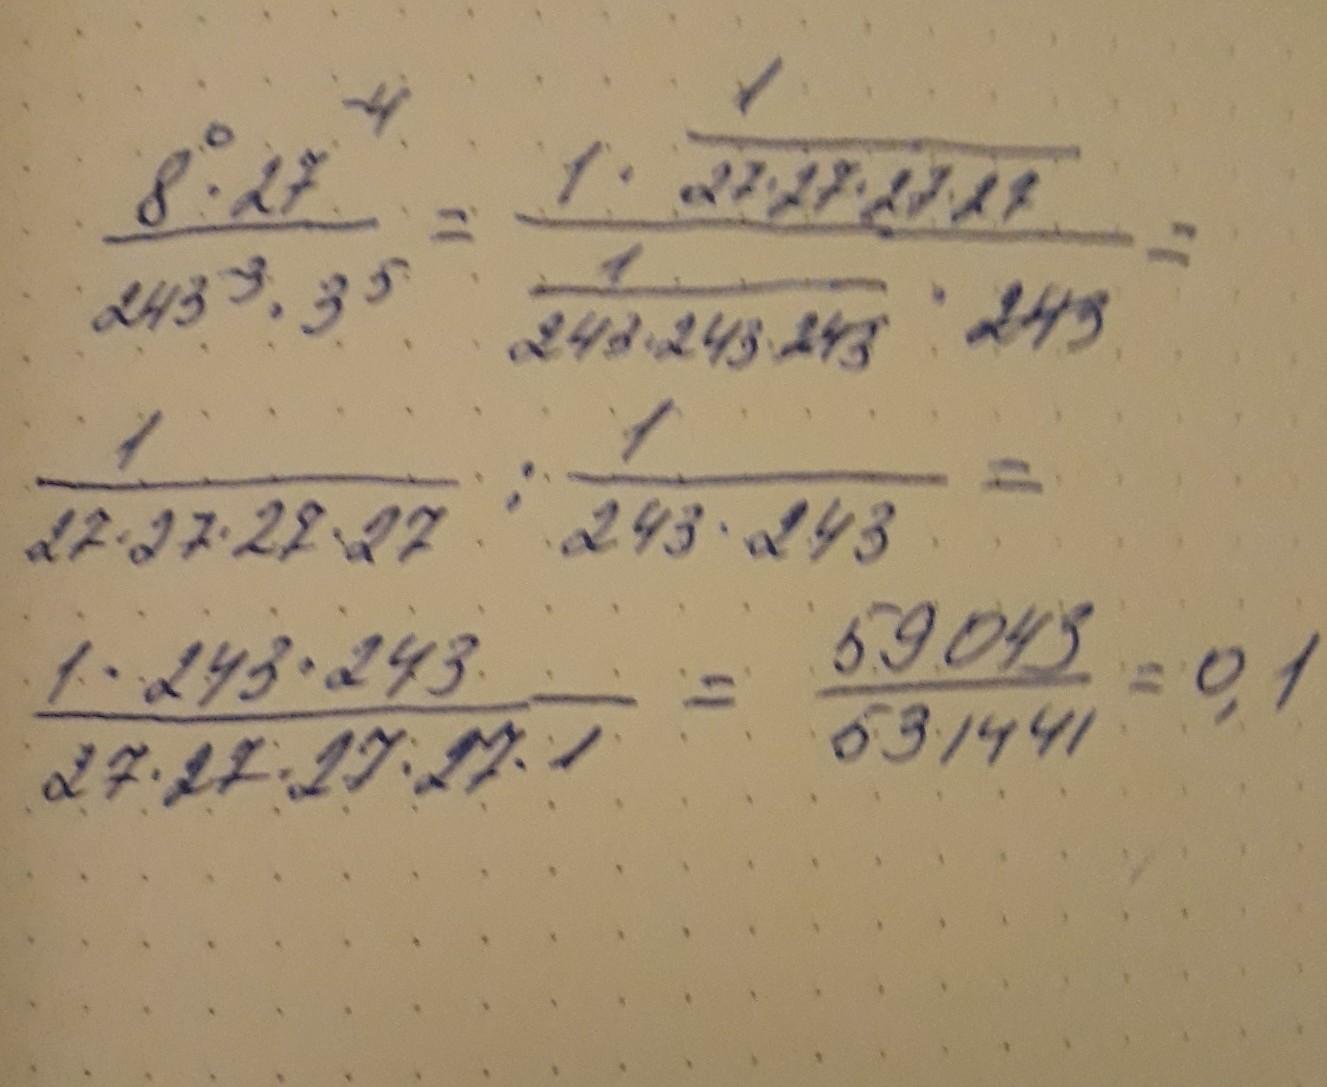 (8⁰ · 27⁻⁴) / (243⁻³ · 3⁵) = (1 · 1/(27·27·27·27)) / (1/(243·243·243) · 243) =
1/(27·27·27·27) : 1/(243·243) =
(1 · 243 · 243)/(27·27·27·27·1) = 59043/531441 = 0,1